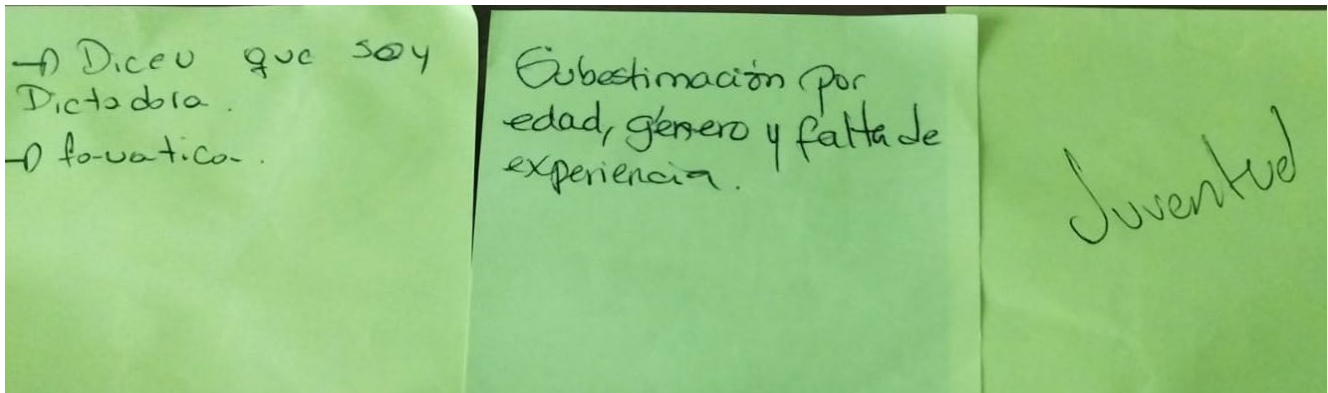 → Dicen que soy
Dictadora.
→ fanatica.
Subestimación por
edad, género y falta de
experiencia.
Juventud